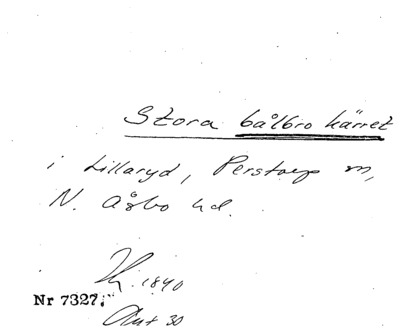 Stora bålbro kärret
i Lillaryd, Perstorp m,
N. Åsbo hd.
1840
Nr 7327
30